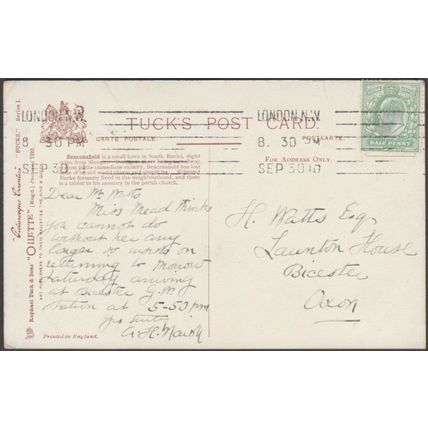 LONDON.N.W.
8. 30 PM
SEP 30
LONDON.N.W.
8. 30 PM
SEP 30 10
TUCK'S POST CARD.
CARTE POSTALE.
POSTKARTE.
FOR ADDRESS ONLY.
HALF PENNY
"Picturesque Counties" BUCKS. Series I.
Raphael Tuck & Sons' "OILETTE" [Regd.] Postcard
Beaconsfield is a small town in South Bucks, eight
Burke formerly lived in the neighbourhood, and there
is a tablet to his memory in the parish church.
Dear Mr Watts
Miss Mead thinks
you cannot do
without her any
longer so insists on
returning to Morrow
Saturday arriving
at Bicester
Station at 5-50 pm
A. H.
H. Watts Esq.
Launton House
Bicester
Oxon
Printed in England.